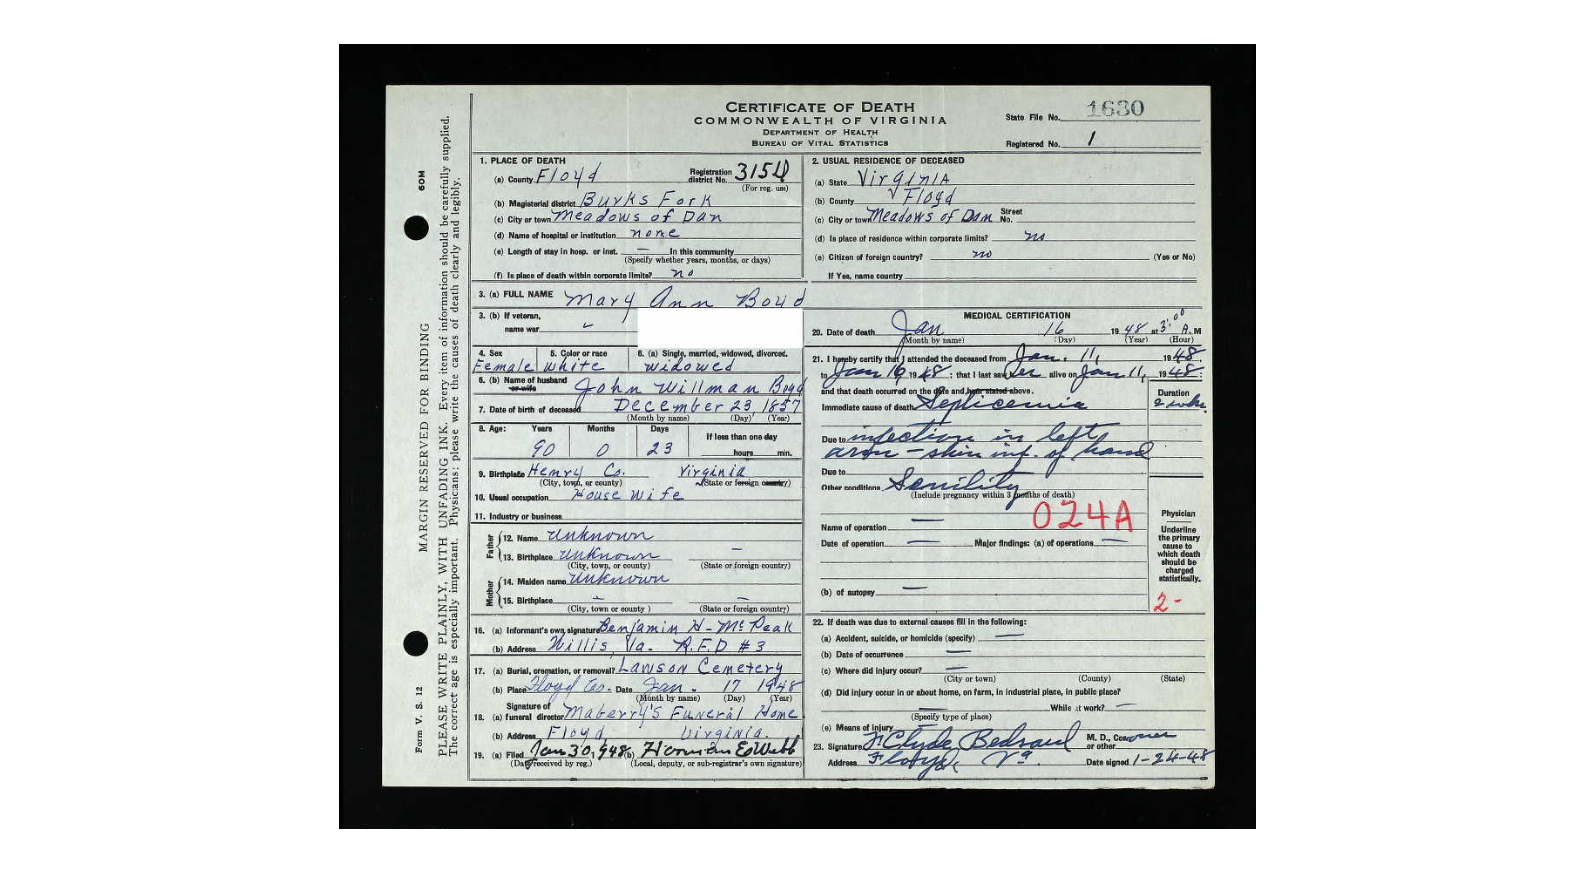 CERTIFICATE OF DEATH
COMMONWEALTH OF VIRGINIA
DEPARTMENT OF HEALTH
BUREAU OF VITAL STATISTICS
State File No. 1630
Registered No. 1
60M
MARGIN RESERVED FOR BINDING
Form V. S. 12
PLEASE WRITE PLAINLY, WITH UNFADING INK. Every item of information should be carefully supplied.
The correct age is especially important. Physicians: please write the causes of death clearly and legibly.
1. PLACE OF DEATH
(a) County Floyd Registration district No. 3154
(For reg. use)
(b) Magisterial district Burks Fork
(c) City or town Meadows of Dan
(d) Name of hospital or institution none
(e) Length of stay in hosp. or inst. — In this community
(Specify whether years, months, or days)
(f) Is place of death within corporate limits? no
2. USUAL RESIDENCE OF DECEASED
(a) State Virginia
(b) County Floyd
(c) City or town Meadows of Dan Street No.
(d) Is place of residence within corporate limits? no
(e) Citizen of foreign country? no (Yes or No)
If Yes, name country
3. (a) FULL NAME Mary Ann Boyd
3. (b) If veteran, name war
4. Sex 5. Color or race 6. (a) Single, married, widowed, divorced.
Female white widowed
6. (b) Name of husband or wife John Willman Boyd
7. Date of birth of deceased December 23, 1857
(Month by name) (Day) (Year)
8. Age: Years Months Days If less than one day
90 0 23 hours min.
9. Birthplace Henry Co. Virginia
(City, town, or county) (State or foreign country)
10. Usual occupation House Wife
11. Industry or business
Father
12. Name Unknown
13. Birthplace Unknown —
(City, town, or county) (State or foreign country)
Mother
14. Maiden name Unknown
15. Birthplace — —
(City, town or county) (State or foreign country)
16. (a) Informant's own signature Benjamin H- McPeak
(b) Address Willis, Va. R.F.D #3
17. (a) Burial, cremation, or removal? Lawson Cemetery
(b) Place Floyd Co. Date Jan. 17 1948
(Month by name) (Day) (Year)
18. (a) Signature of funeral director Maberry's Funeral Home
(b) Address Floyd, Virginia.
19. (a) Filed Jan 30, 1948 (b) Harman E Webb
(Date received by reg.) (Local, deputy, or sub-registrar's own signature)
MEDICAL CERTIFICATION
20. Date of death Jan 16 1948 at 3:00 A. M
(Month by name) (Day) (Year) (Hour)
21. I hereby certify that I attended the deceased from Jan. 11, 1948
to Jan 16, 1948 : that I last saw her alive on Jan 11, 1948:
and that death occurred on the date and hour stated above.
Duration
Immediate cause of death Septicemia 2 wks.
Due to infection in left
arm – skin inf. of hand
Due to
Other conditions Senility
(Include pregnancy within 3 months of death)
024A
Name of operation —
Date of operation — Major findings: (a) of operations —
(b) of autopsy —
Physician
Underline the primary cause to which death should be charged statistically.
2-
22. If death was due to external causes fill in the following:
(a) Accident, suicide, or homicide (specify) —
(b) Date of occurrence —
(c) Where did injury occur? —
(City or town) (County) (State)
(d) Did injury occur in or about home, on farm, in industrial place, in public place?
— While at work? —
(Specify type of place)
(e) Means of injury
23. Signature F Clyde Bedsaul M. D., Coroner or other
Address Floyd, Va. Date signed 1-24-48